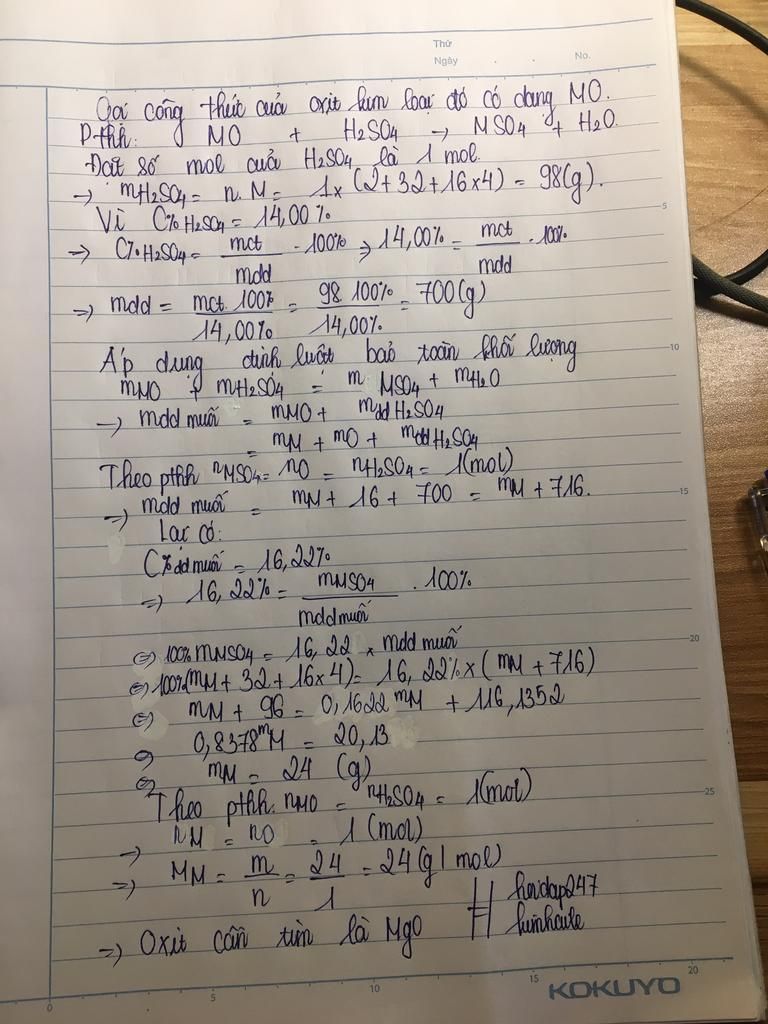 Thứ
Ngày
No.
Gọi công thức của oxit kim loại đó có dạng MO.
Pthh: MO + H2SO4 → MSO4 + H2O.
Đặt số mol của H2SO4 là 1 mol.
→ mH2SO4 = n. M = 1 x (2+32+16x4) = 98(g).
Vì C% H2SO4 = 14,00%
→ C% H2SO4 = mct/mdd . 100% => 14,00% = mct/mdd . 100%
=> mdd = mct. 100%/14,00% = 98 100%/14,00% = 700(g)
Áp dụng định luật bảo toàn khối lượng
mMO + mH2SO4 = m MSO4 + mH2O
→ mdd muối = mMO + mdd H2SO4
= mM + mO + mdd H2SO4
Theo pthh nMSO4 = nO = nH2SO4 = 1(mol)
=> mdd muối = mM + 16 + 700 = mM + 716.
Lại có:
C% dd muối = 16,22%
=> 16,22% = mMSO4/mdd muối . 100%
⇔ 100% mMSO4 = 16,22 x mdd muối
⇔ 100%(mM + 32 + 16x4) = 16,22% x (mM + 716)
⇔ mM + 96 = 0,1622 mM + 116,1352
⇔ 0,8378 mM = 20,13
⇔ mM = 24 (g)
Theo pthh: nMO = nH2SO4 = 1(mol)
→ nM = nO = 1 (mol)
=> MM = m/n = 24/1 = 24 (g/mol)
=> Oxit cần tìm là MgO
hoidap247
5
10
15
20
25
0 5 10 15 20
KOKUYO